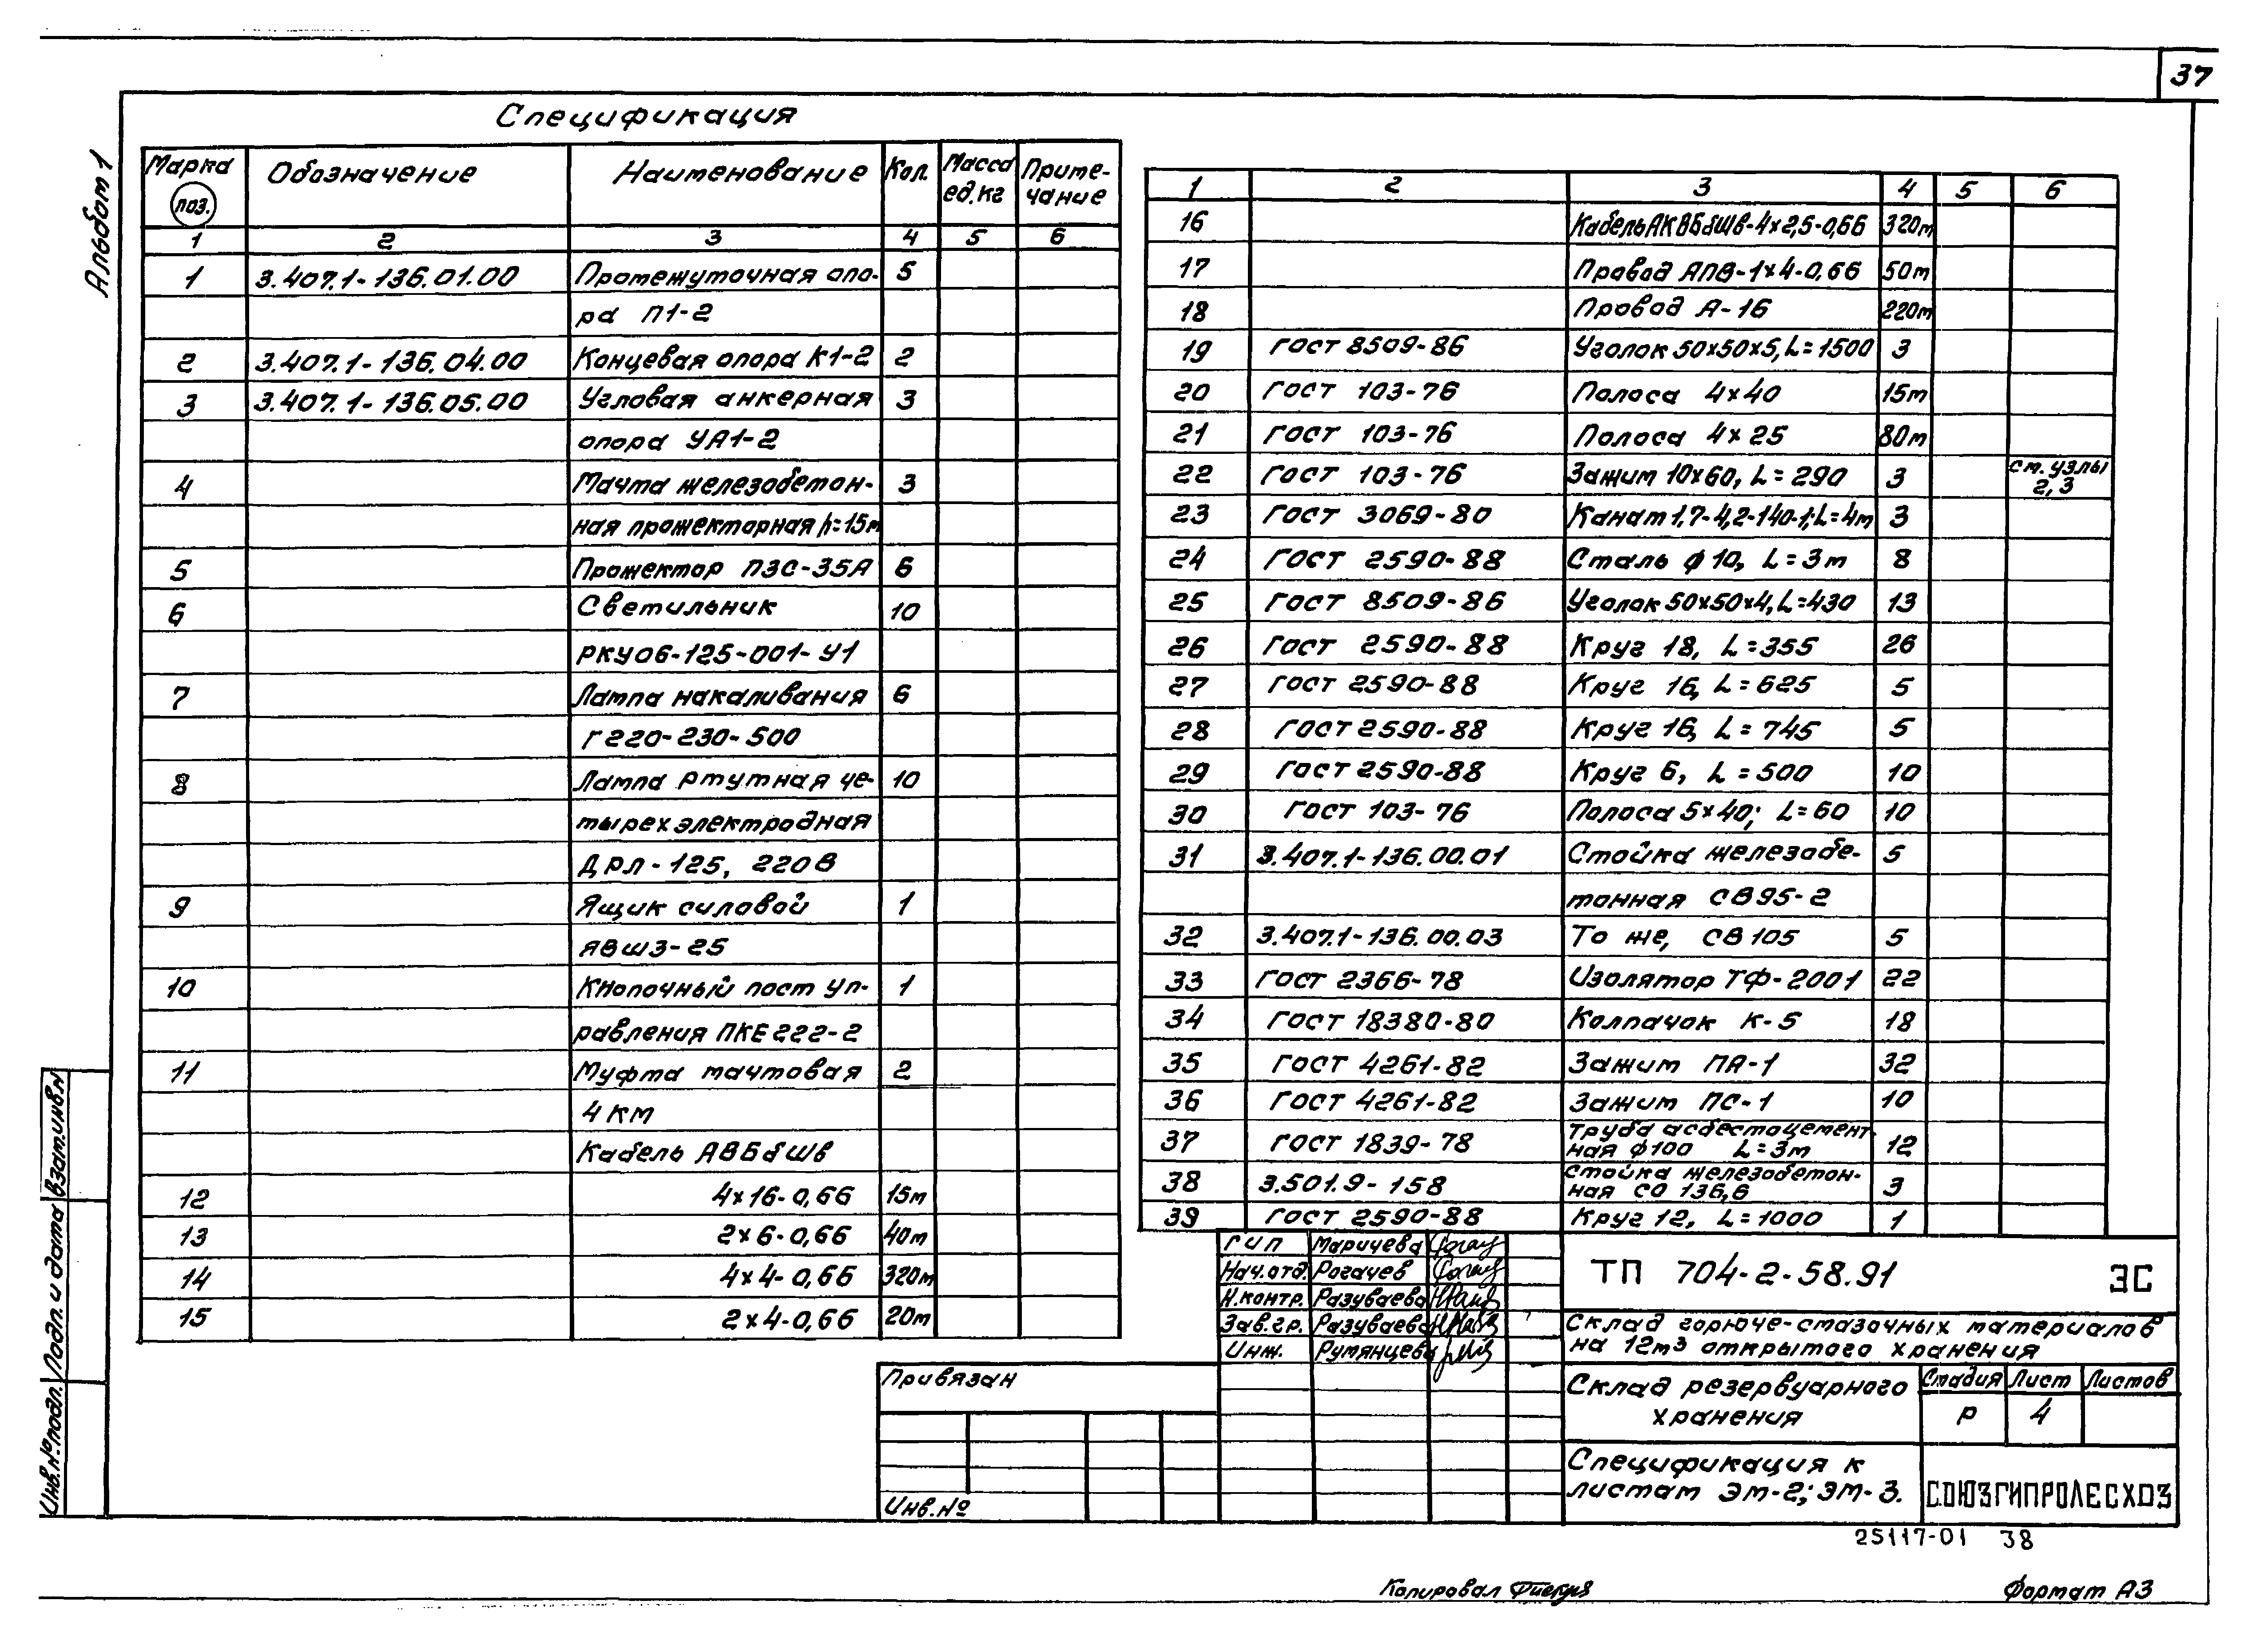 37
Альбом 1
Спецификация
Марка поз. Обозначение Наименование Кол. Масса ед.кг Примечание
1 2 3 4 5 6
1 3.407.1-136.01.00 Промежуточная опо- 5
ра П1-2
2 3.407.1-136.04.00 Концевая опора К1-2 2
3 3.407.1-136.05.00 Угловая анкерная 3
опора УА1-2
4 Мачта железобетон- 3
ная прожекторная h=15м
5 Прожектор ПЗС-35А 6
6 Светильник 10
РКУ06-125-001-У1
7 Лампа накаливания 6
Г220-230-500
8 Лампа ртутная че- 10
тырехэлектродная
ДРЛ-125, 220В
9 Ящик силовой 1
ЯВШ3-25
10 Кнопочный пост уп- 1
равления ПКЕ222-2
11 Муфта мачтовая 2
4КМ
Кабель АВБбШв
12 4х16-0,66 15м
13 2х6-0,66 40м
14 4х4-0,66 320м
15 2х4-0,66 20м
1 2 3 4 5 6
16 Кабель АКВБбШв-4х2,5-0,66 320м
17 Провод АПВ-1х4-0,66 50м
18 Провод А-16 220м
19 ГОСТ 8509-86 Уголок 50х50х5, L=1500 3
20 ГОСТ 103-76 Полоса 4х40 15м
21 ГОСТ 103-76 Полоса 4х25 80м
22 ГОСТ 103-76 Зажим 10х60, L=290 3 см. узлы 2,3
23 ГОСТ 3069-80 Канат 1,7-4,2-140-1; L=4м 3
24 ГОСТ 2590-88 Сталь ф10, L=3м 8
25 ГОСТ 8509-86 Уголок 50х50х4, L=430 13
26 ГОСТ 2590-88 Круг 18, L=355 26
27 ГОСТ 2590-88 Круг 16, L=625 5
28 ГОСТ 2590-88 Круг 16, L=745 5
29 ГОСТ 2590-88 Круг 6, L=500 10
30 ГОСТ 103-76 Полоса 5х40; L=60 10
31 3.407.1-136.00.01 Стойка железобе- 5
тонная СВ95-2
32 3.407.1-136.00.03 То же, СВ105 5
33 ГОСТ 2366-78 Изолятор ТФ-2001 22
34 ГОСТ 18380-80 Колпачок К-5 18
35 ГОСТ 4261-82 Зажим ПА-1 32
36 ГОСТ 4261-82 Зажим ПС-1 10
37 ГОСТ 1839-78 Труба асбестоцемент- 12
ная ф100 L=3м
38 3.501.9-158 Стойка железобетон- 3
ная СО 136,6
39 ГОСТ 2590-88 Круг 12, L=1000 1
ГИП Маричева
Нач.отд. Рогачев
Н.контр. Разуваева
Зав.гр. Разуваева
Инж. Румянцева
ТП 704-2-58.91 ЭС
Склад горюче-смазочных материалов
на 12м3 открытого хранения
Склад резервуарного
хранения
Стадия Лист Листов
Р 4
Спецификация к
листам ЭМ-2; ЭМ-3.
СОЮЗГИПРОЛЕСХОЗ
Привязан
Инв.№
Инв.№подл. Подп. и дата Взам.инв.№
25117-01 38
Копировал
Формат А3